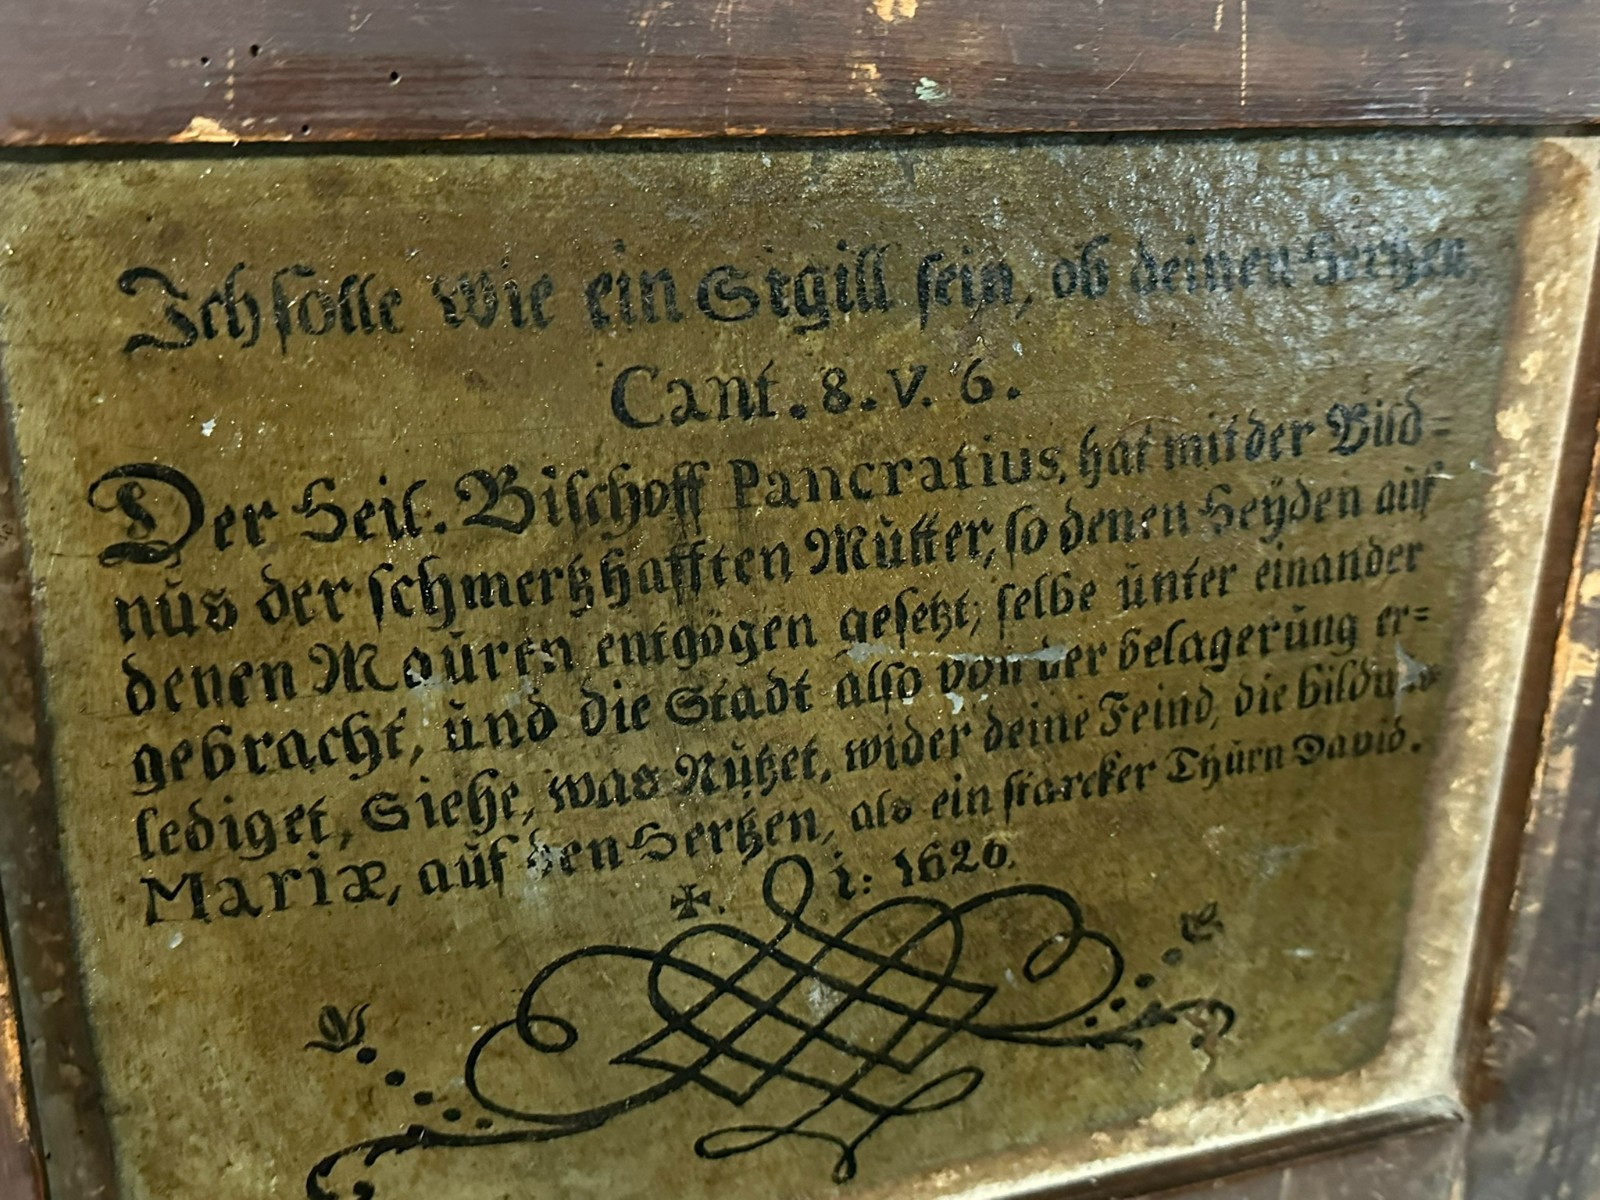 Ich solle wie ein Sigill sein, ob deinen Hertzen,
Cant. 8. v. 6.
Der Heil. Bischoff Pancratius, hat mit der Bild=
nus der schmertzhafften Mutter, so denen Heyden auf
denen Mauren entgögen gesetzt, selbe unter einander
gebracht, und die Stadt also von der belagerung er=
lediget, Siehe, was Nutzet, wider deine Feind, die bildnus
Mariæ, auf den Hertzen, als ein starcker Thurn David.
✠. i: 1620.